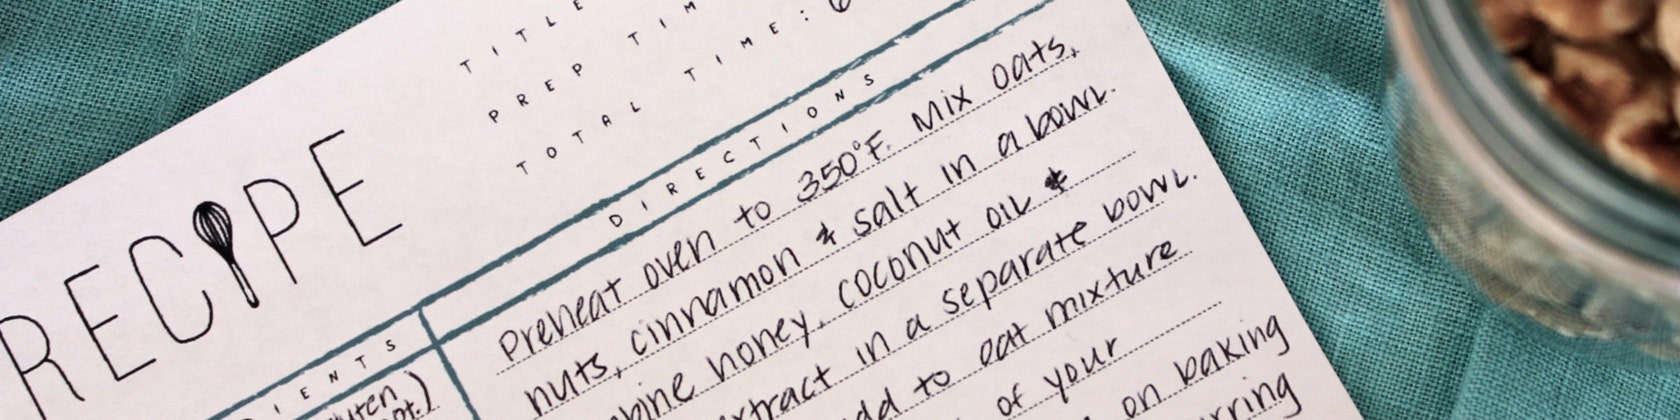 RECIPE
TITLE
PREP TIM
TOTAL TIME:
DIRECTIONS
Preheat oven to 350°F. Mix oats,
nuts, cinnamon & salt in a bowl.
bine honey, coconut oil &
xtract in a separate bowl.
dd to oat mixture
of your
on baking
rring
IENTS
uten
ot.)